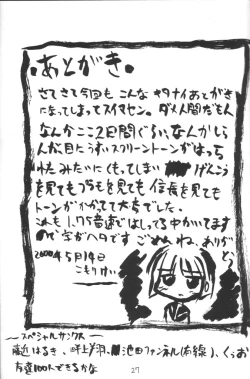 あとがき。
さてさて今回も こんな キタナイ あとがき
になってしまって スイマセン。ダメ人間だもん
なんかここ2日間ぐらい、なんかしら
んが目にうすいスクリーントーンがはっち
ゃったみたいにくもってしまい げんこう
を見ても つらを見ても 信長を見ても
トーンがかかってて大変でした。
これも1.75倍速ではしってる中かいてます
ので字がヘタです ごめんね、ありがと
2000年5月14日
こもりけい
〜スペシャルサンクス〜
藤近はるき、 池田ファンネル(右線)、くぅお
友達100人できるかな
27